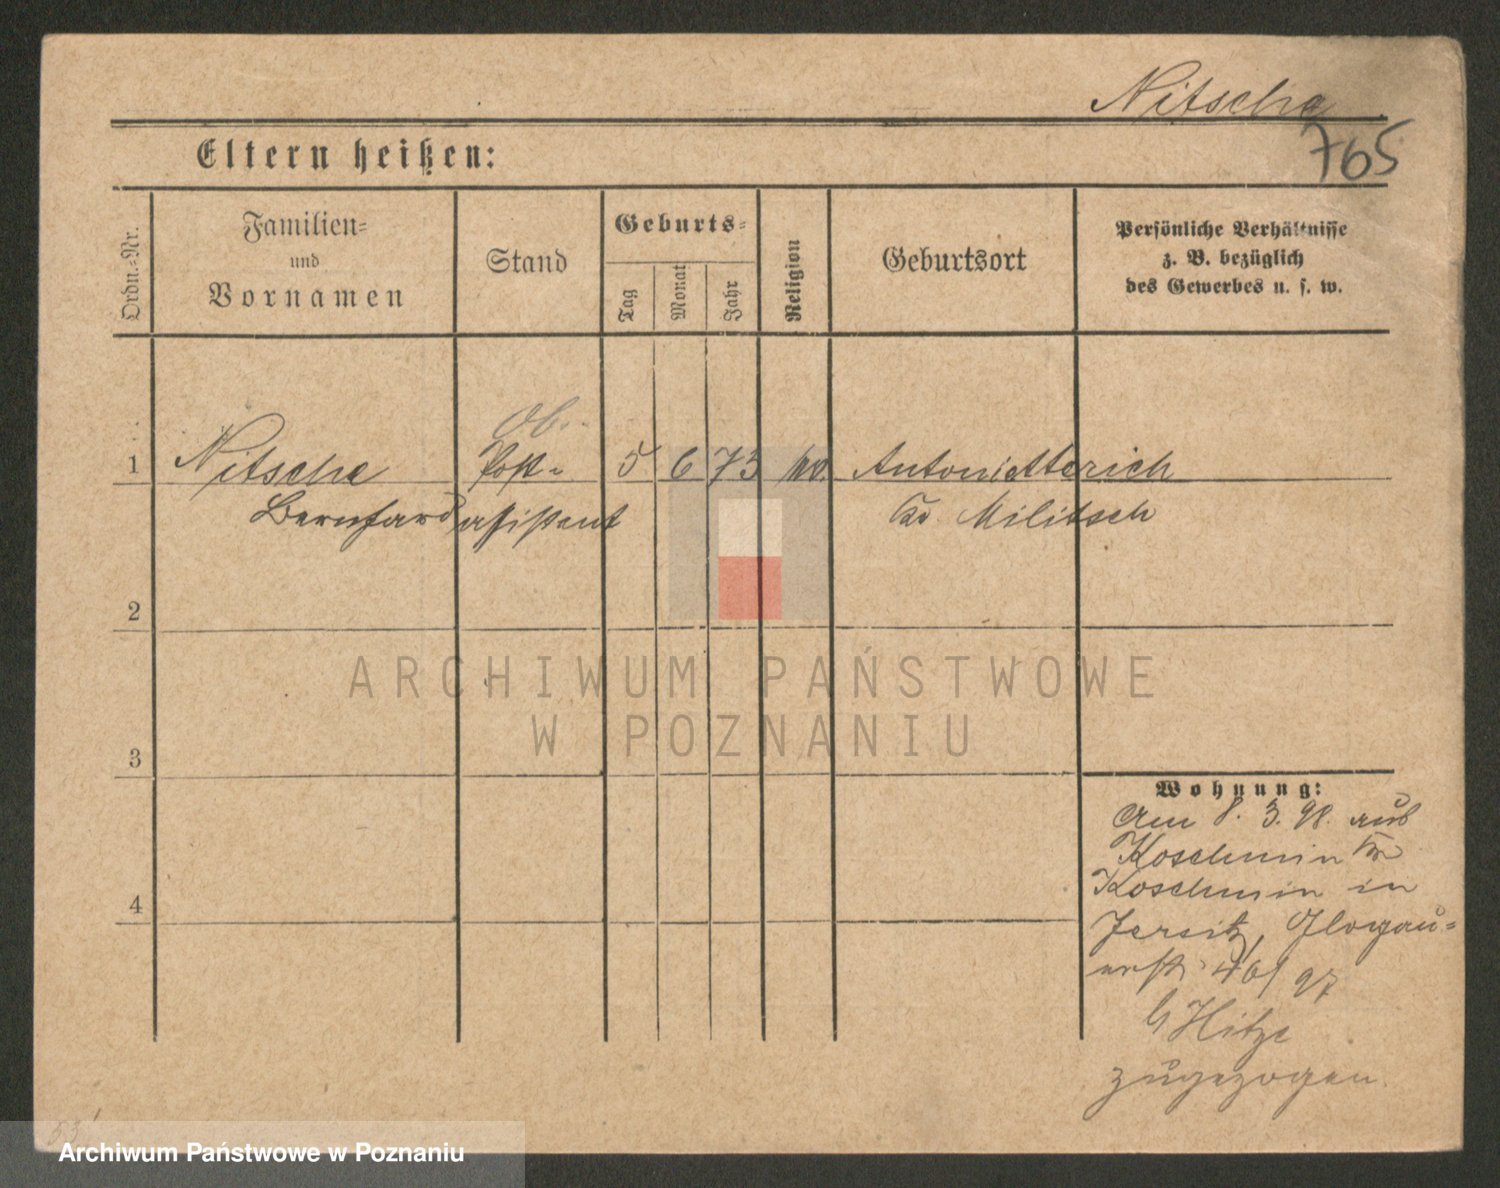 Nitsche
765
Eltern heißen:
Ordn.-Nr.
Familien-
und
Vornamen
Stand
Geburts-
Tag
Monat
Jahr
Religion
Geburtsort
Persönliche Verhältnisse
z. B. bezüglich
des Gewerbes u. s. w.
Ob.
1 Nitsche Post- 5 6 73 Antonietterich
Bernhard assistent Kr. Militsch
2
3
4
Wohnung:
Am 8. 3. 98. aus
Koschmin Kr
Koschmin in
Jersitz, Glogau-
erstr 96/97
b Hitze
zugezogen.
ARCHIWUM PAŃSTWOWE
W POZNANIU
Archiwum Państwowe w Poznaniu